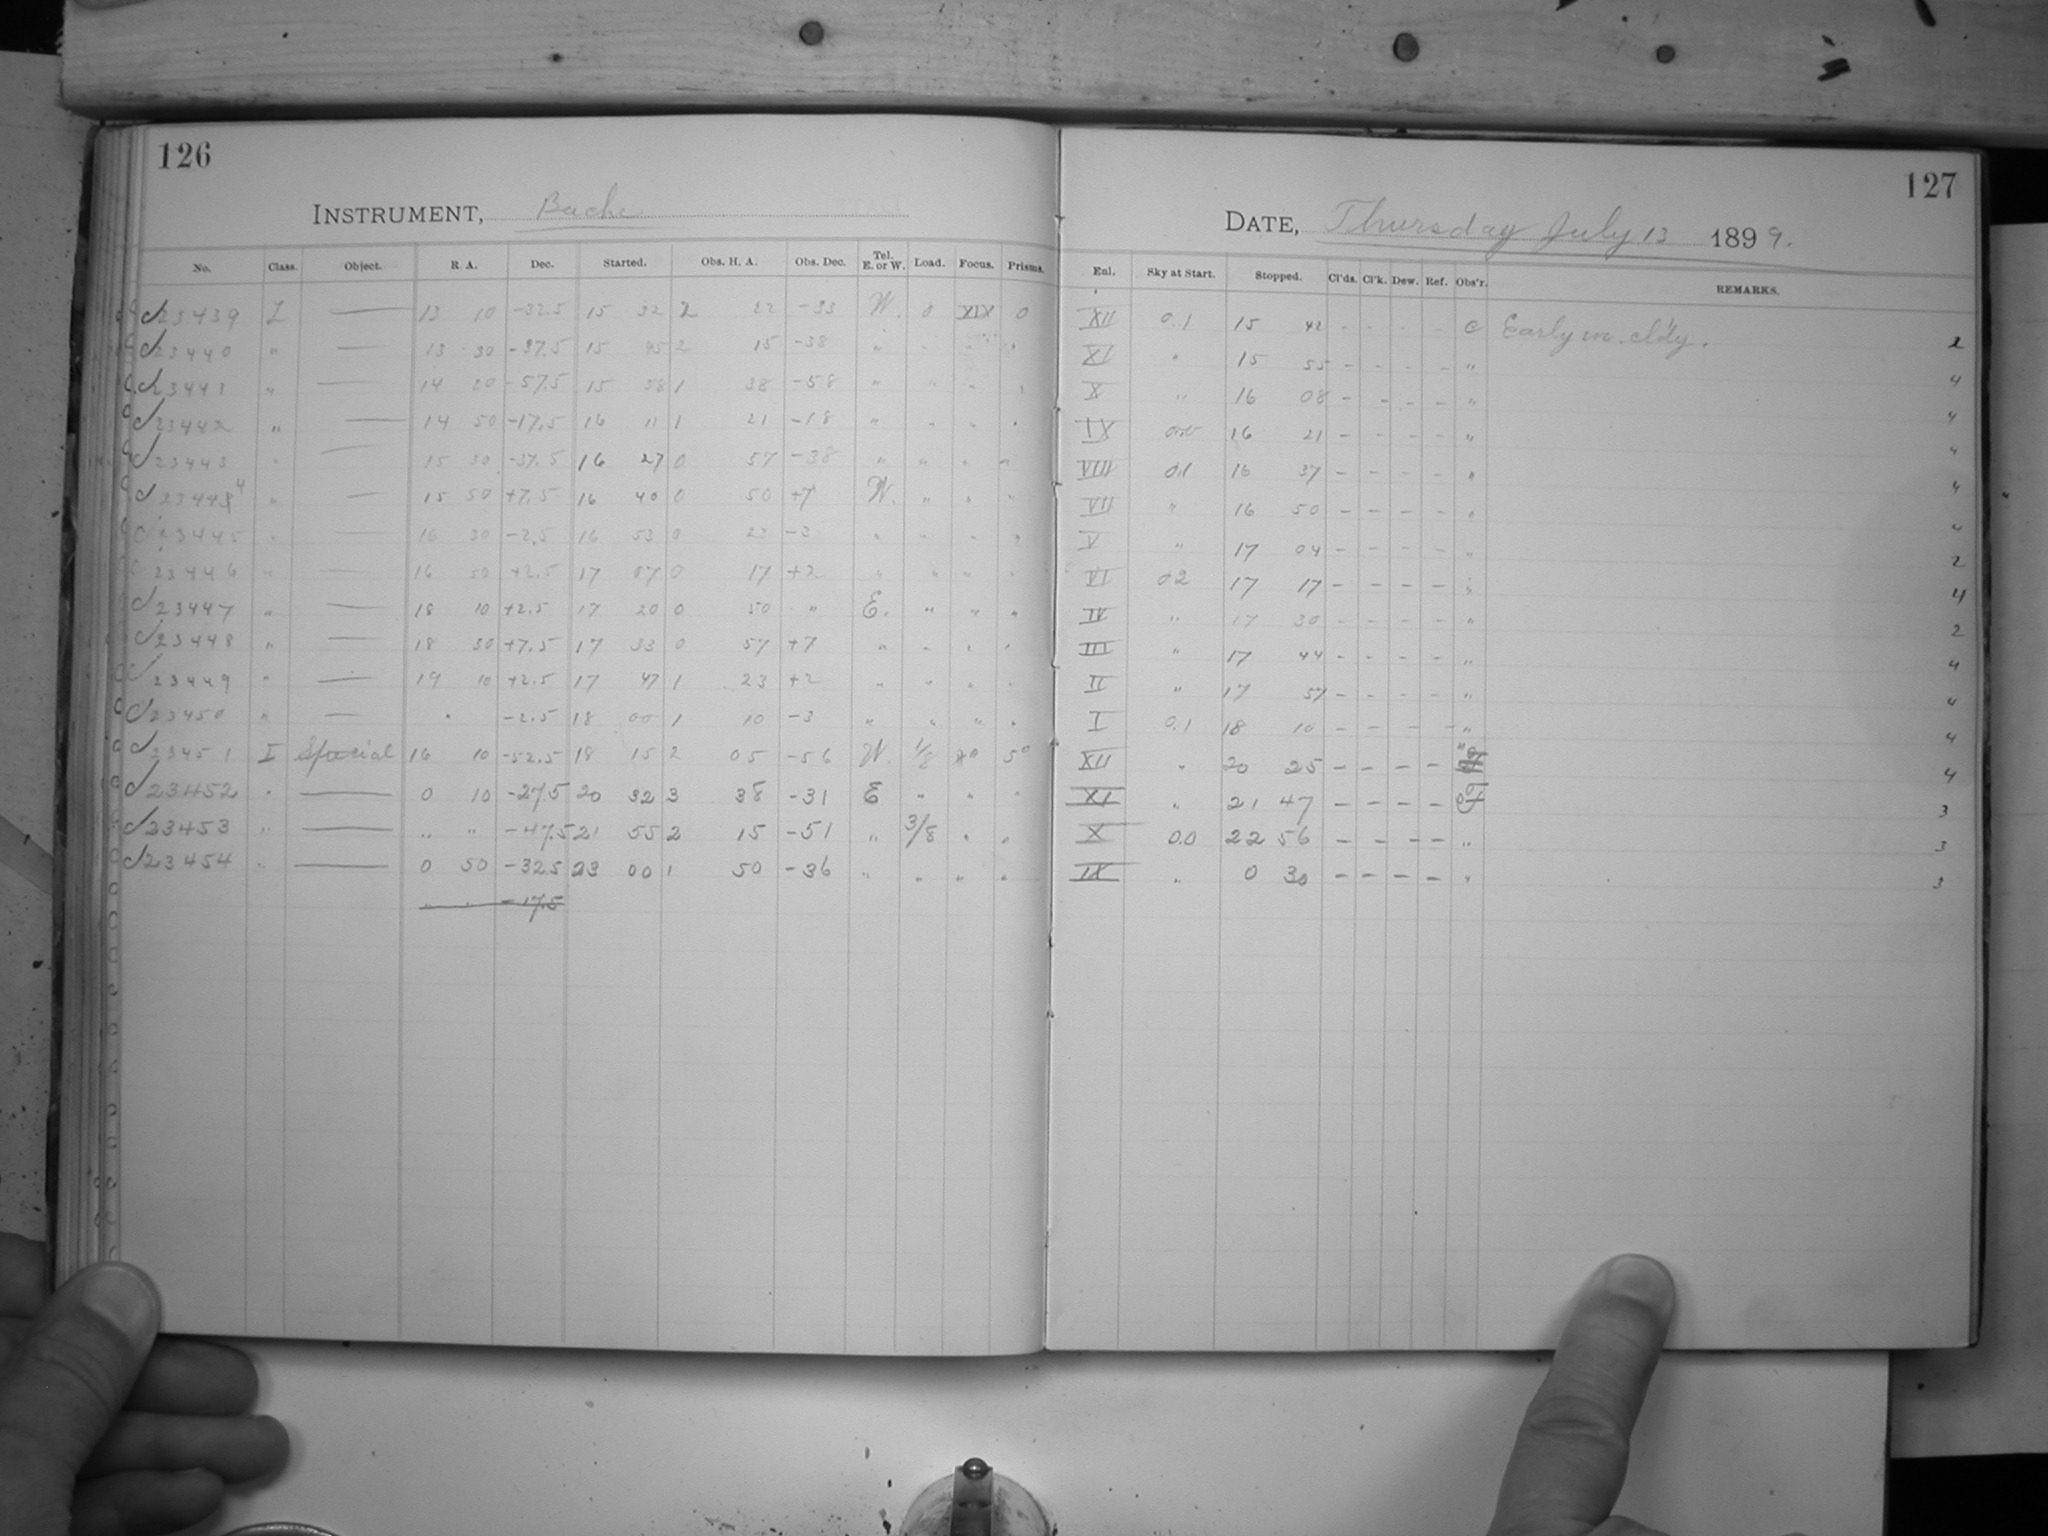 126
INSTRUMENT, Bache
No. Class. Object. R. A. Dec. Started. Obs. H. A. Obs. Dec. Tel. E. or W. Load. Focus. Prisms.
23439 L — 13 10 -32.5 15 32 2 22 -33 W. 0 XIX 0
23440 " — 13 30 -37.5 15 45 2 15 -38 " " " "
23441 " — 14 20 -57.5 15 58 1 38 -58 " " " "
23442 " — 14 50 -17.5 16 11 1 21 -18 " " " "
23443 " — 15 30 -37.5 16 27 0 57 -38 " " " "
23444 " — 15 50 +7.5 16 40 0 50 +7 W. " " "
23445 " — 16 30 -2.5 16 53 0 23 -3 " " " "
23446 " — 16 50 +2.5 17 07 0 17 +2 " " " "
23447 " — 18 10 +2.5 17 20 0 50 " E. " " "
23448 " — 18 30 +7.5 17 33 0 57 +7 " " " "
23449 " — 19 10 +2.5 17 47 1 23 +2 " " " "
23450 " — " -2.5 18 00 1 10 -3 " " " "
23451 I Special 16 10 -52.5 18 15 2 05 -56 W. 1/8 50
23452 " — 0 10 -27.5 20 32 3 38 -31 E " " "
23453 " — " " -47.5 21 55 2 15 -51 " 3/8 " "
23454 " — 0 50 -32.5 23 00 1 50 -36 " " " "
" " -17.5
127
DATE, Thursday July 13 1899.
Enl. Sky at Start. Stopped. Cl'ds. Cl'k. Dew. Ref. Obs'r. REMARKS.
XII 0.1 15 42 - - - - C Early m. cl'dy. 2
XI " 15 55 - - - - " 4
X " 16 08 - - - - " 4
IX 16 21 - - - - " 4
VIII 0.1 16 37 - - - - " 4
VII " 16 50 - - - - " 4
V " 17 04 - - - - " 2
VI 02 17 17 - - - - " 4
IV " 17 30 - - - - " 2
III " 17 44 - - - - " 4
II " 17 57 - - - - " 4
I 0.1 18 10 - - - - " 4
XII " 20 25 - - - - " 4
XI " 21 47 - - - - 3
X 0.0 22 56 - - - - " 3
IX " 0 30 - - - - " 3